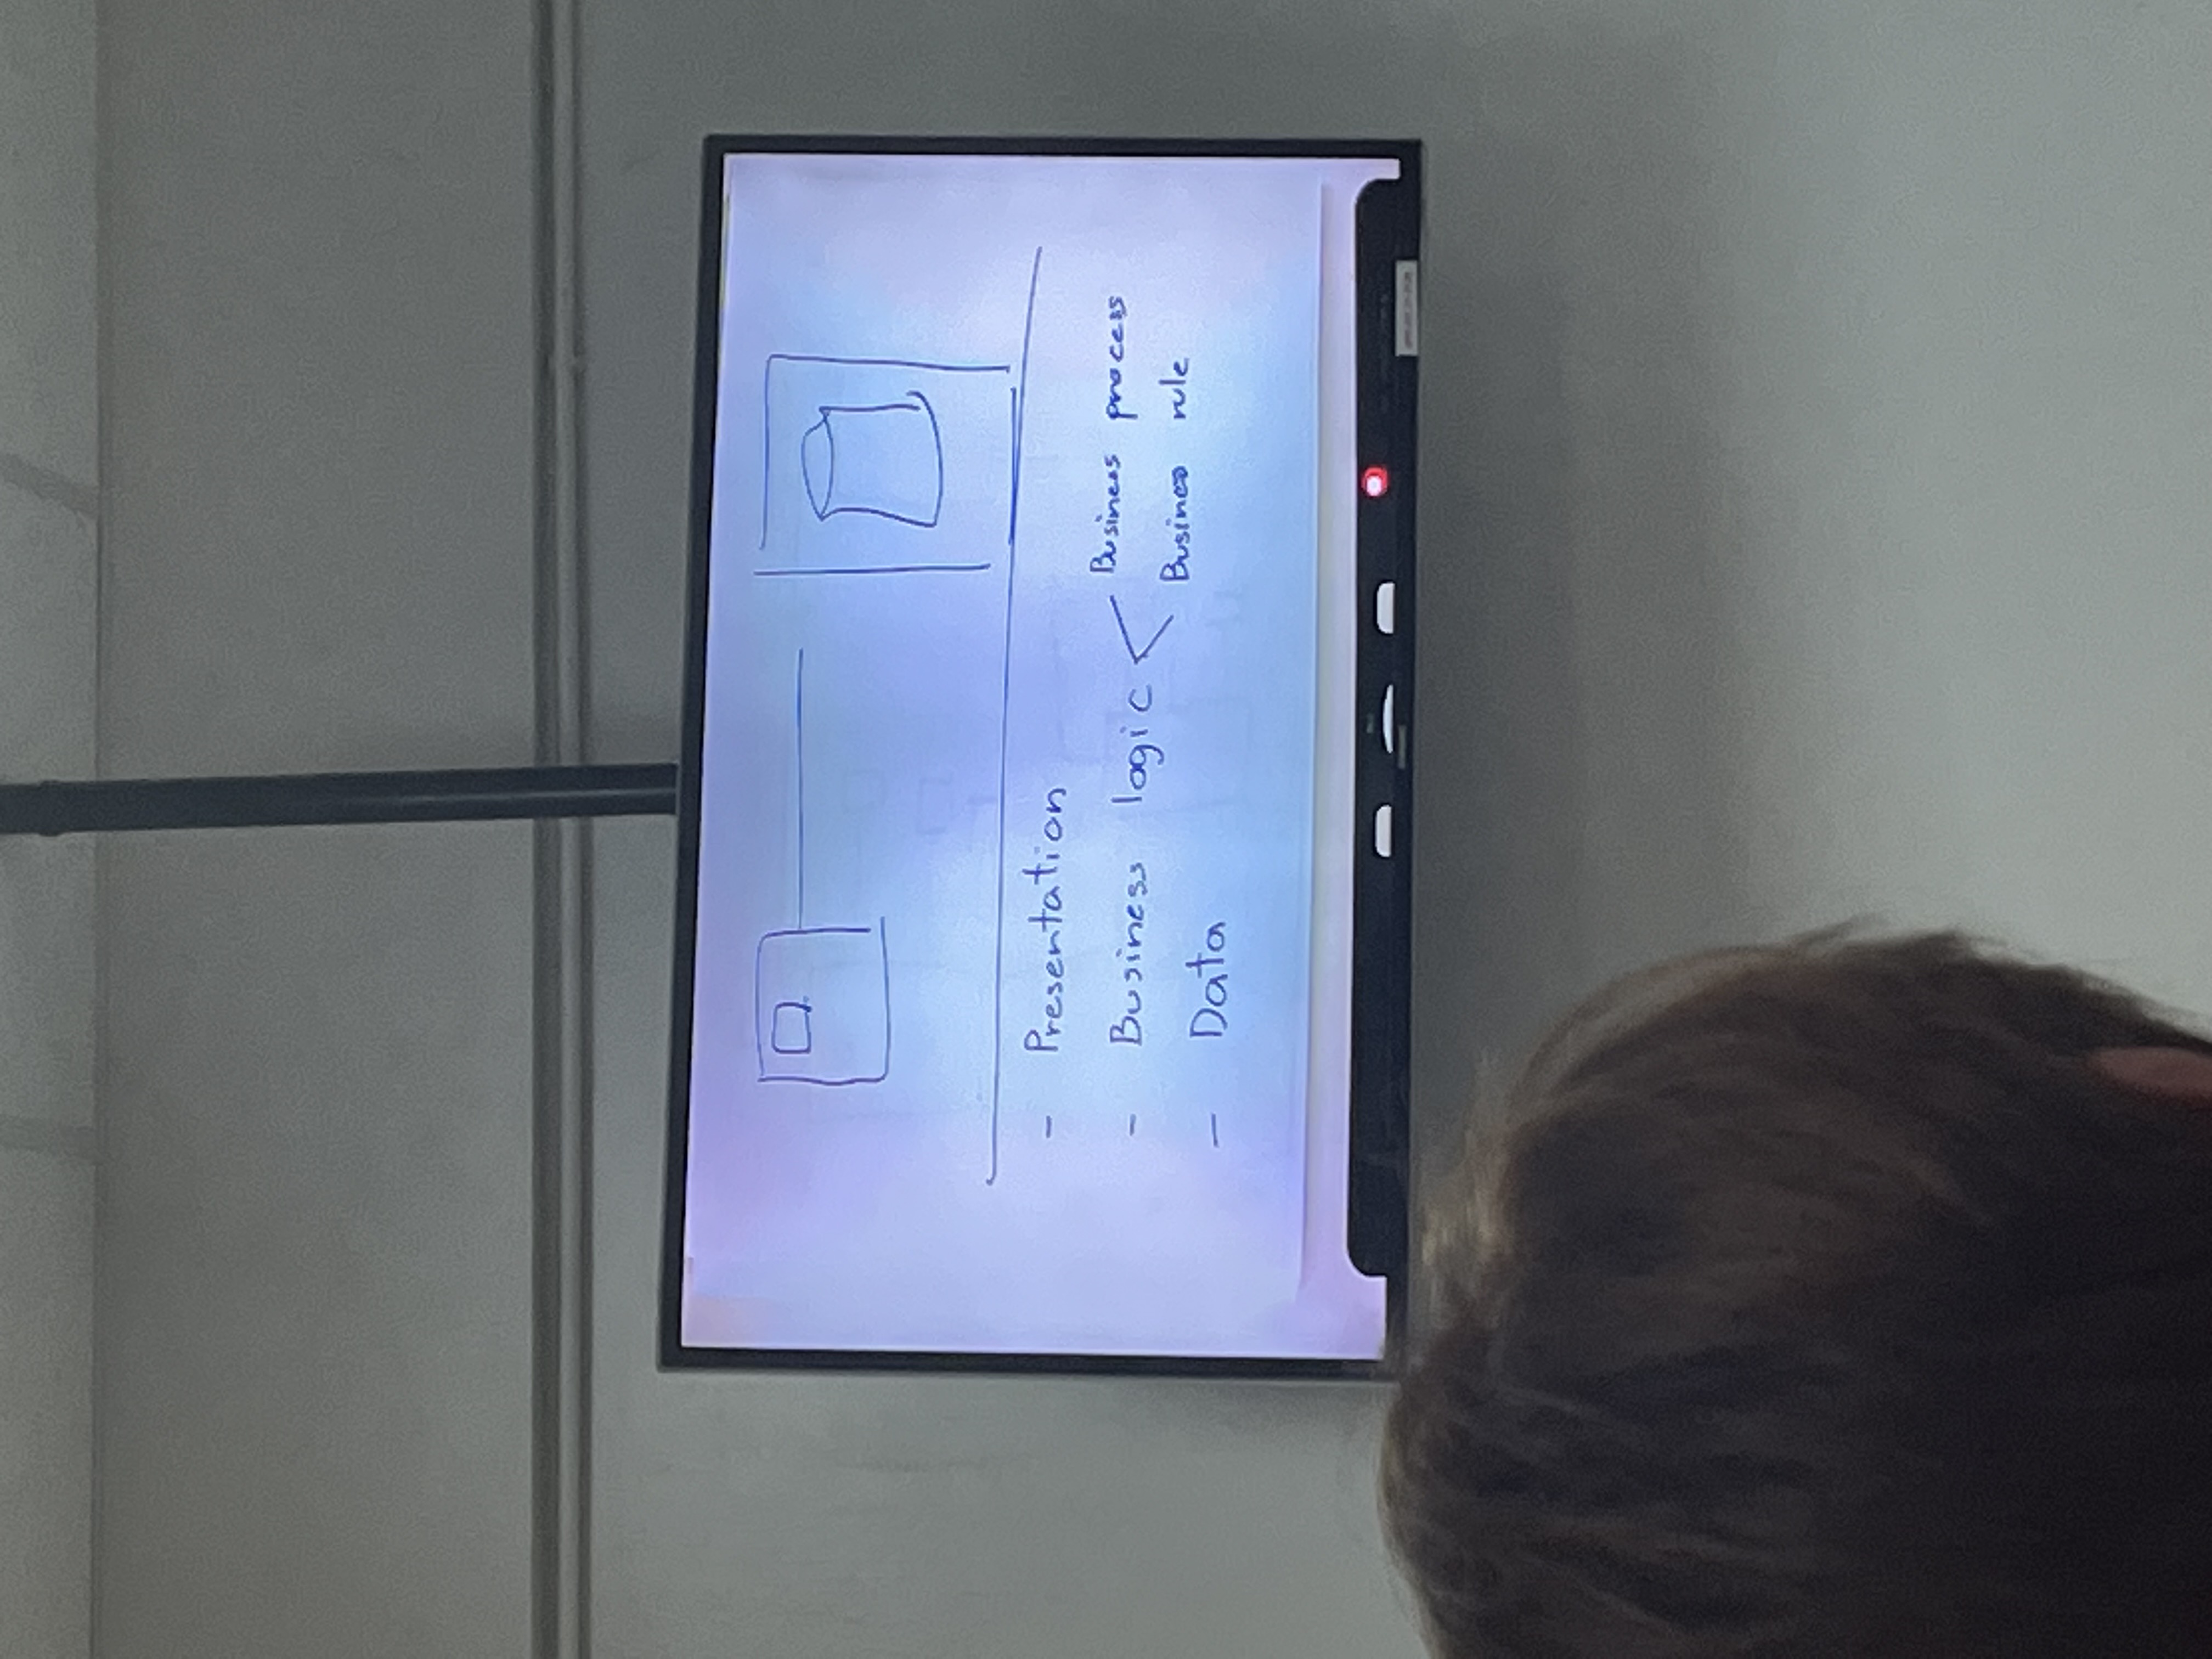 - Presentation
- Business logic < Business process
Business rule
- Data